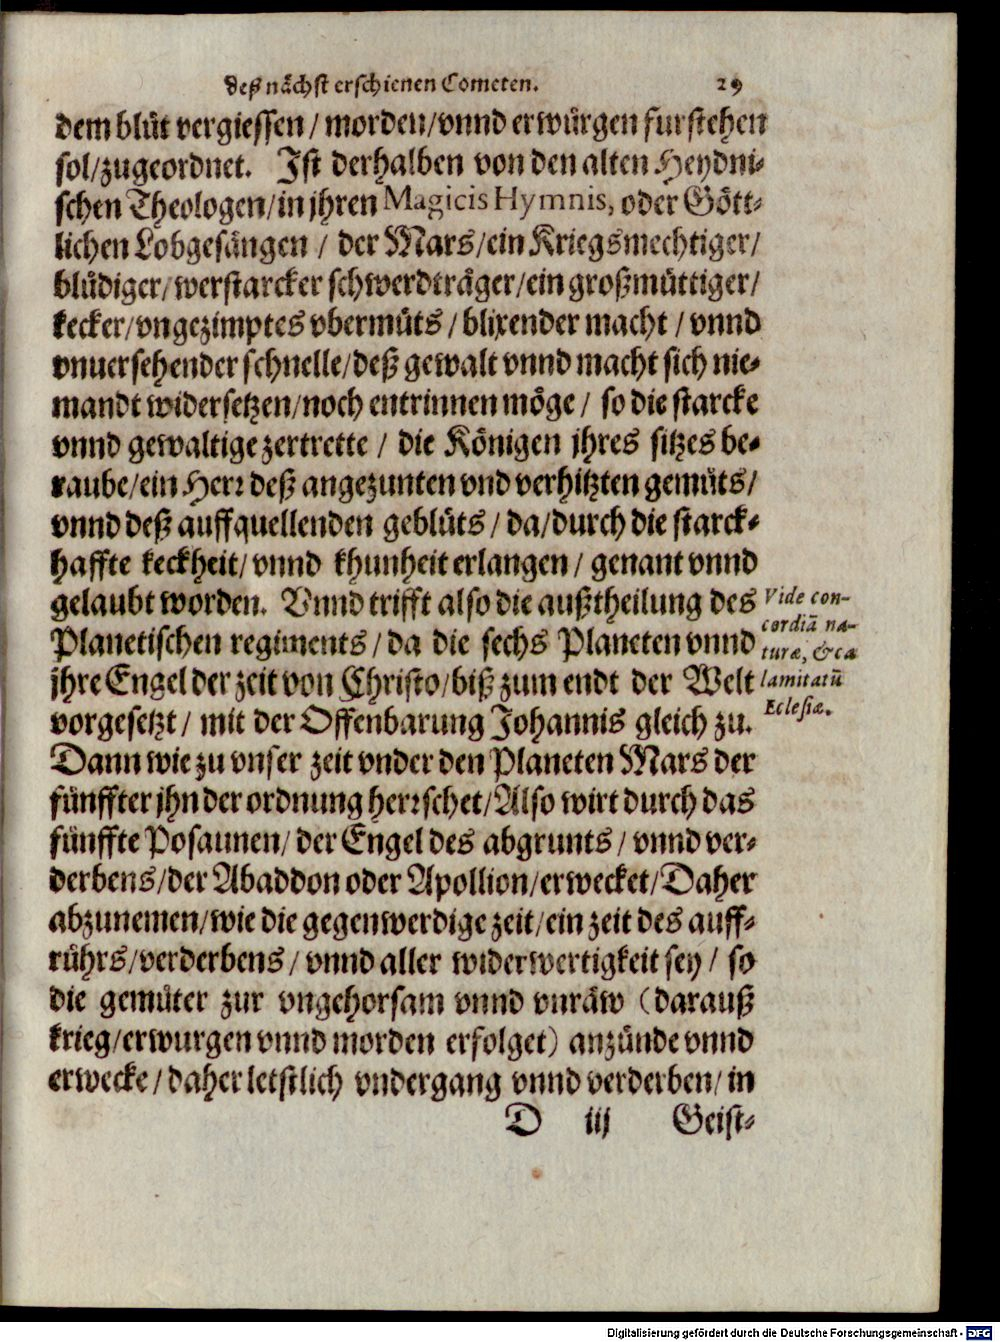 deß nächst erschienen Cometen. 29
dem blůt vergiessen / morden/vnnd erwůrgen furstehen
sol/zugeordnet. Ist derhalben von den alten Heydni⸗
schen Theologen/in jhren Magicis Hymnis, oder Gött⸗
lichen Lobgesängen / der Mars/ein Kriegsmechtiger/
blůdiger/werstarcker schwerdträger/ein großmüttiger/
kecker/vngezimptes vbermůts / blixender macht / vnnd
vnuersehender schnelle/deß gewalt vnnd macht sich nie⸗
mandt widersetzen/noch entrinnen möge / so die starcke
vnnd gewaltige zertrette / die Königen jhres sitzes be⸗
raube/ein Herr deß angezunten vnd verhitzten gemůts/
vnnd deß auffquellenden geblůts / da/durch die starck⸗
haffte keckheit/ vnnd khunheit erlangen / genant vnnd
gelaubt worden. Vnnd trifft also die außtheilung des
Planetischen regiments / da die sechs Planeten vnnd
jhre Engel der zeit von Christo/biß zum endt der Welt
vorgesetzt / mit der Offenbarung Johannis gleich zu.
Vide con-
cordiā na-
turæ, & ca
lamitatū
Eclesiæ.
Dann wie zu vnser zeit vnder den Planeten Mars der
fünffter jhn der ordnung herrschet/Also wirt durch das
fünffte Posaunen/ der Engel des abgrunts / vnnd ver⸗
derbens/der Abaddon oder Apollion/erwecket/Daher
abzunemen/wie die gegenwerdige zeit/ein zeit des auff⸗
růhrs/verderbens / vnnd aller widerwertigkeit sey / so
die gemůter zur vngehorsam vnnd vnräw (darauß
krieg/erwurgen vnnd morden erfolget) anzünde vnnd
erwecke / daher letstlich vndergang vnnd verderben/ in
D iij Geist⸗
Digitalisierung gefördert durch die Deutsche Forschungsgemeinschaft - DFG